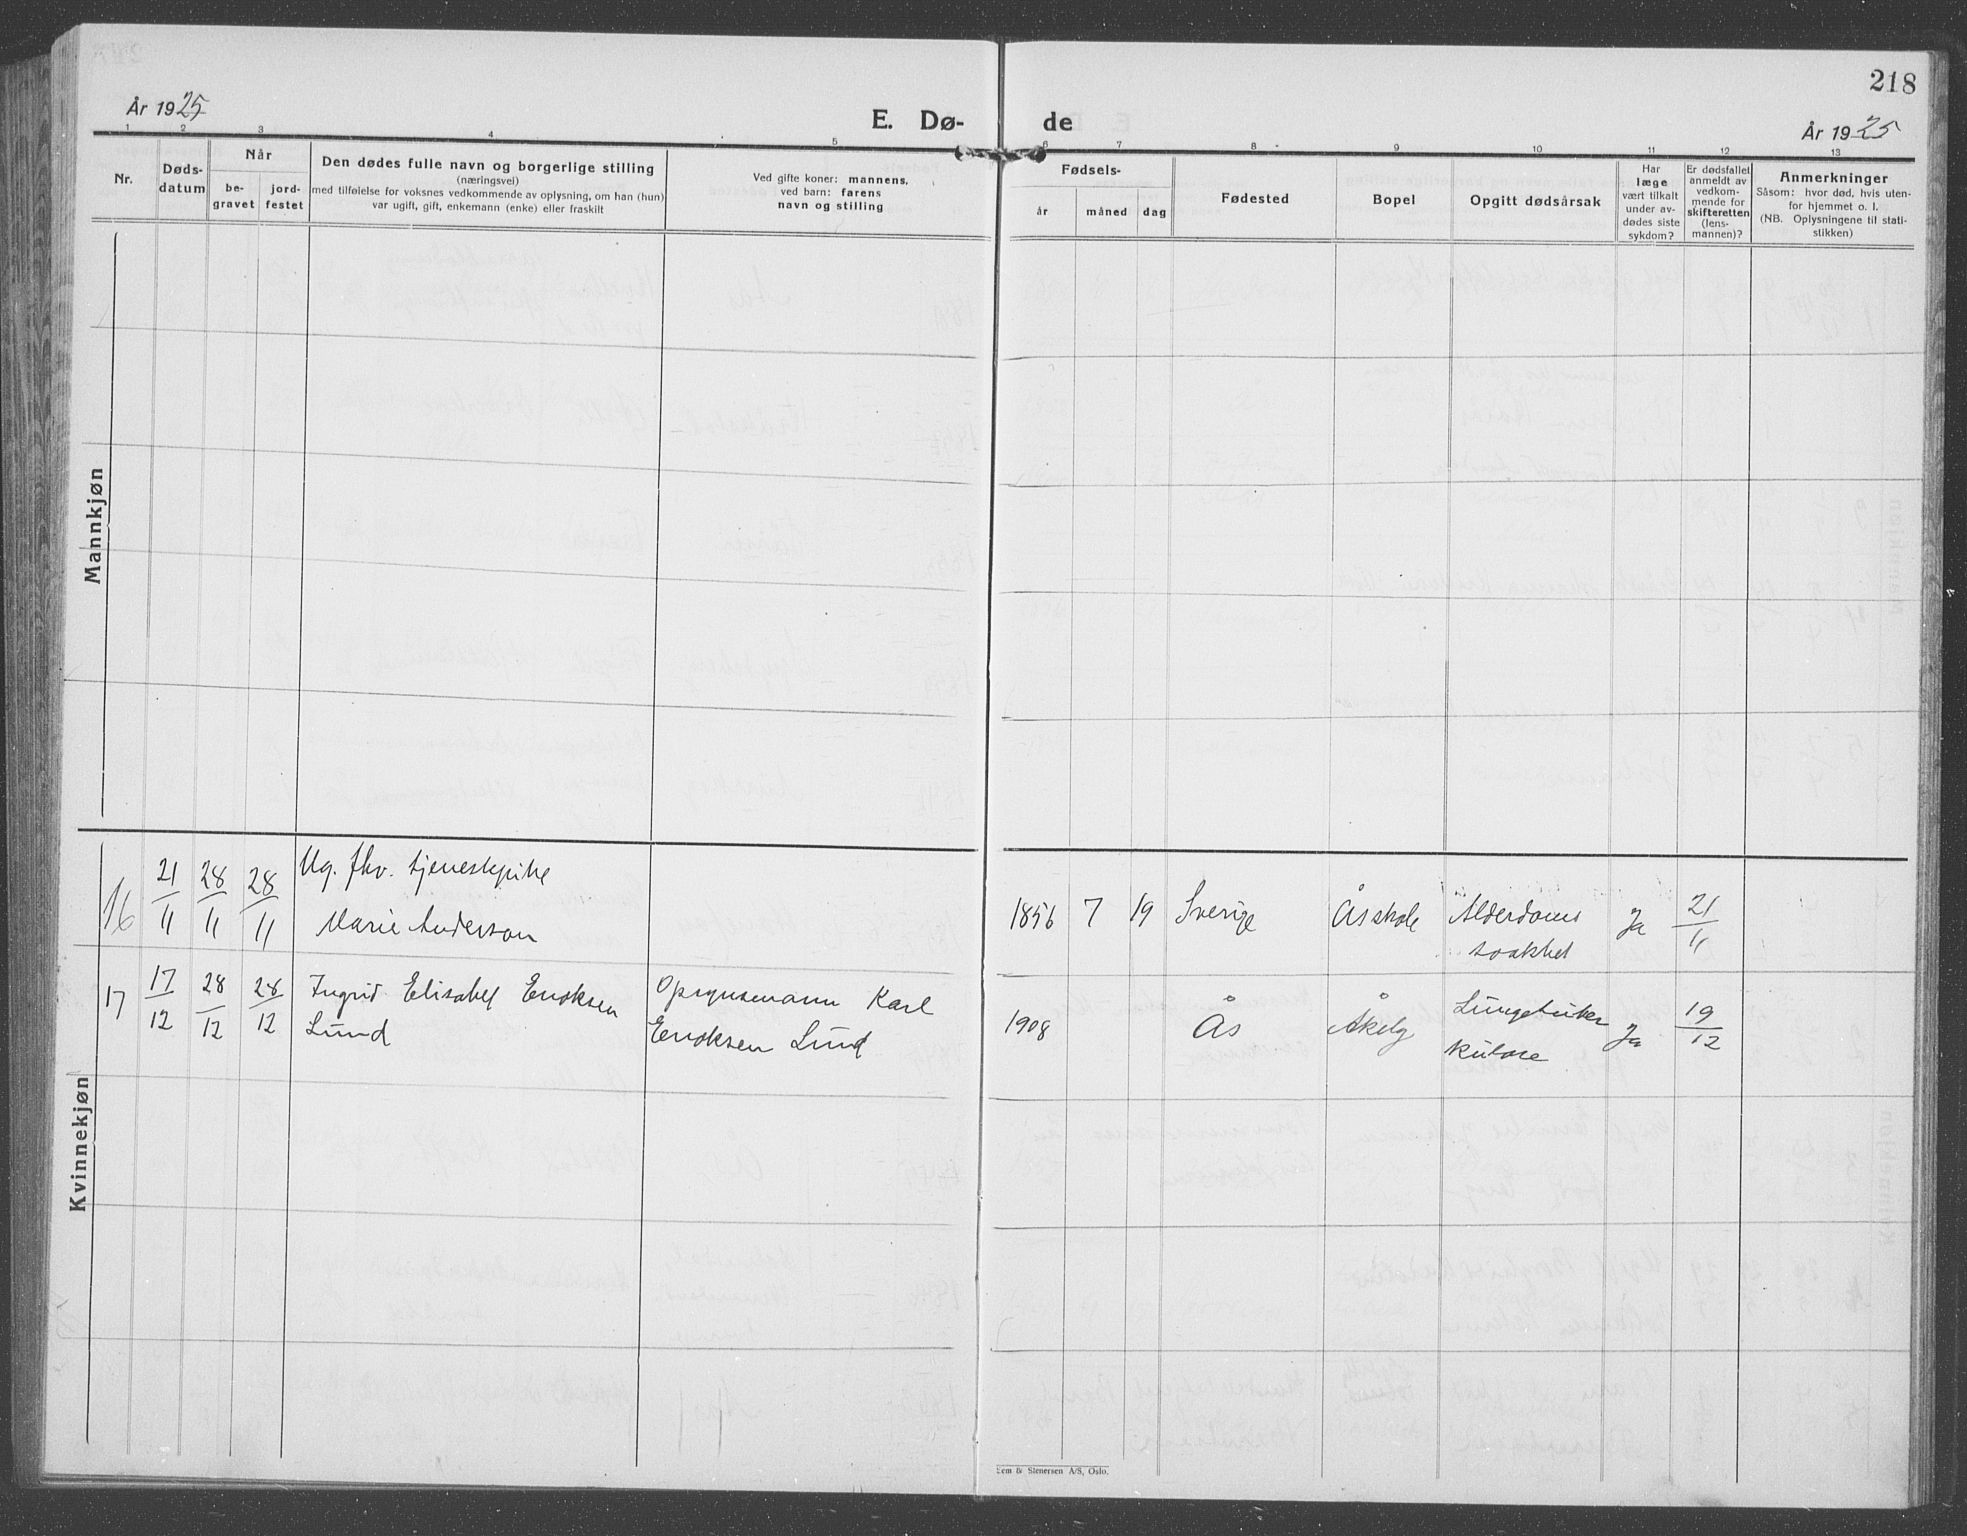 218
År 1925
E. Dø-
de
År 1925
1 2 3 4 5 6 7 8 9 10 11 12 13
Nr.
Døds-
datum
Når
be-
gravet
jord-
festet
Den dødes fulle navn og borgerlige stilling
(næringsvei)
med tilføielse for voksnes vedkommende av oplysning, om han (hun)
var ugift, gift, enkemann (enke) eller fraskilt
Ved gifte koner: mannens,
ved barn: farens
navn og stilling
Fødsels-
år måned dag
Fødested
Bopel
Opgitt dødsårsak
Har
læge
vært tilkalt
under av-
dødes siste
sykdom?
Er dødsfallet
anmeldt av
vedkom-
mende for
skifteretten
(lens-
mannen)?
Anmerkninger
Såsom: hvor død, hvis uten-
for hjemmet o. l.
(NB. Oplysningene til stati-
stikken)
Mannkjøn
Kvinnekjøn
16 21/11 28/11 28/11 Ug. fhv. tjenestepike
Marie Anderson
1856 7 19 Sverige Ås skole Alderdoms
svakhet
Ja 21/11
17 17/12 28/12 28/12 Ingrid Elisabet Enoksen
Lund
Opsynsmann Karl
Enoksen Lund
1908 Ås Åkebg Lungetuber
kulose
Ja 19/12
Sem & Stenersen A/S, Oslo.